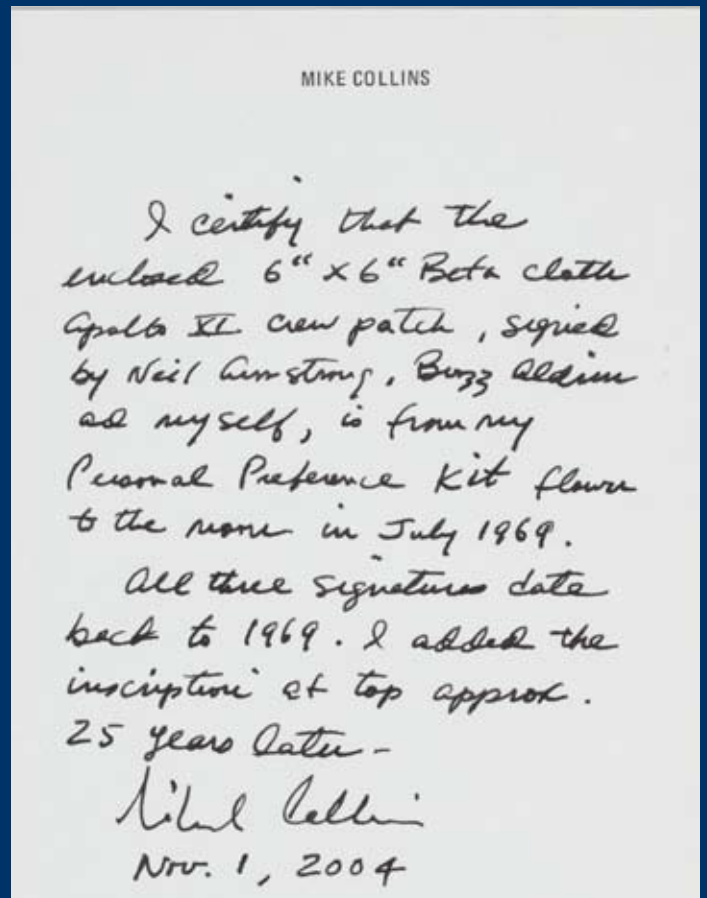 MIKE COLLINS
I certify that the
enclosed 6" x 6" Beta cloth
Apollo XI crew patch, signed
by Neil Armstrong, Buzz Aldrin
ad myself, is from my
Personal Preference Kit flown
to the moon in July 1969.
All three signatures date
back to 1969. I added the
inscription at top approx.
25 years later -
Michael Collins
Nov. 1, 2004